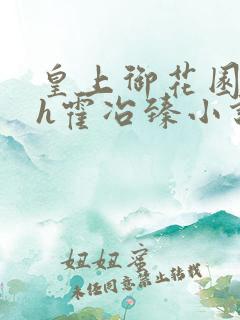 皇上御花园
h霍冶臻小
妞妞蜜
未经同意禁止转载